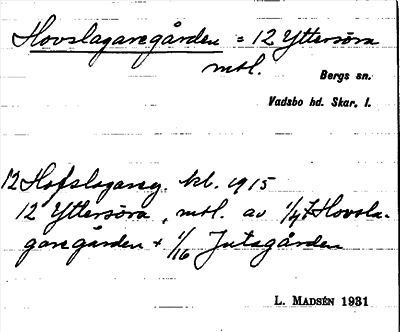 Hovslagaregården = 12 Yttersöra
mtl.
Bergs sn.
Vadsbo hd. Skar. l.
12 Hofslagareg. kb. 1915
12 Yttersöra, mtl. av 1/4 Hovsla-
garegården + 1/16 Jutagården
L. MADSÉN 1931